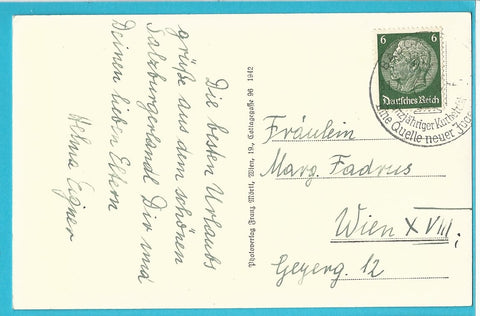 Die besten Urlaubs
grüße aus dem schönen
Salzburgerlandl Dir und
Deinen lieben Eltern
Helma Eigner
Photoverlag Franz Mörtl, Wien, 19., Cottagegasse 96 1942
6 6
Deutsches Reich
ganzjähriger Kurbetrieb
eine Quelle neuer Jugend
Fräulein
Marg. Fadrus
Wien XVIII;
Geyerg. 12